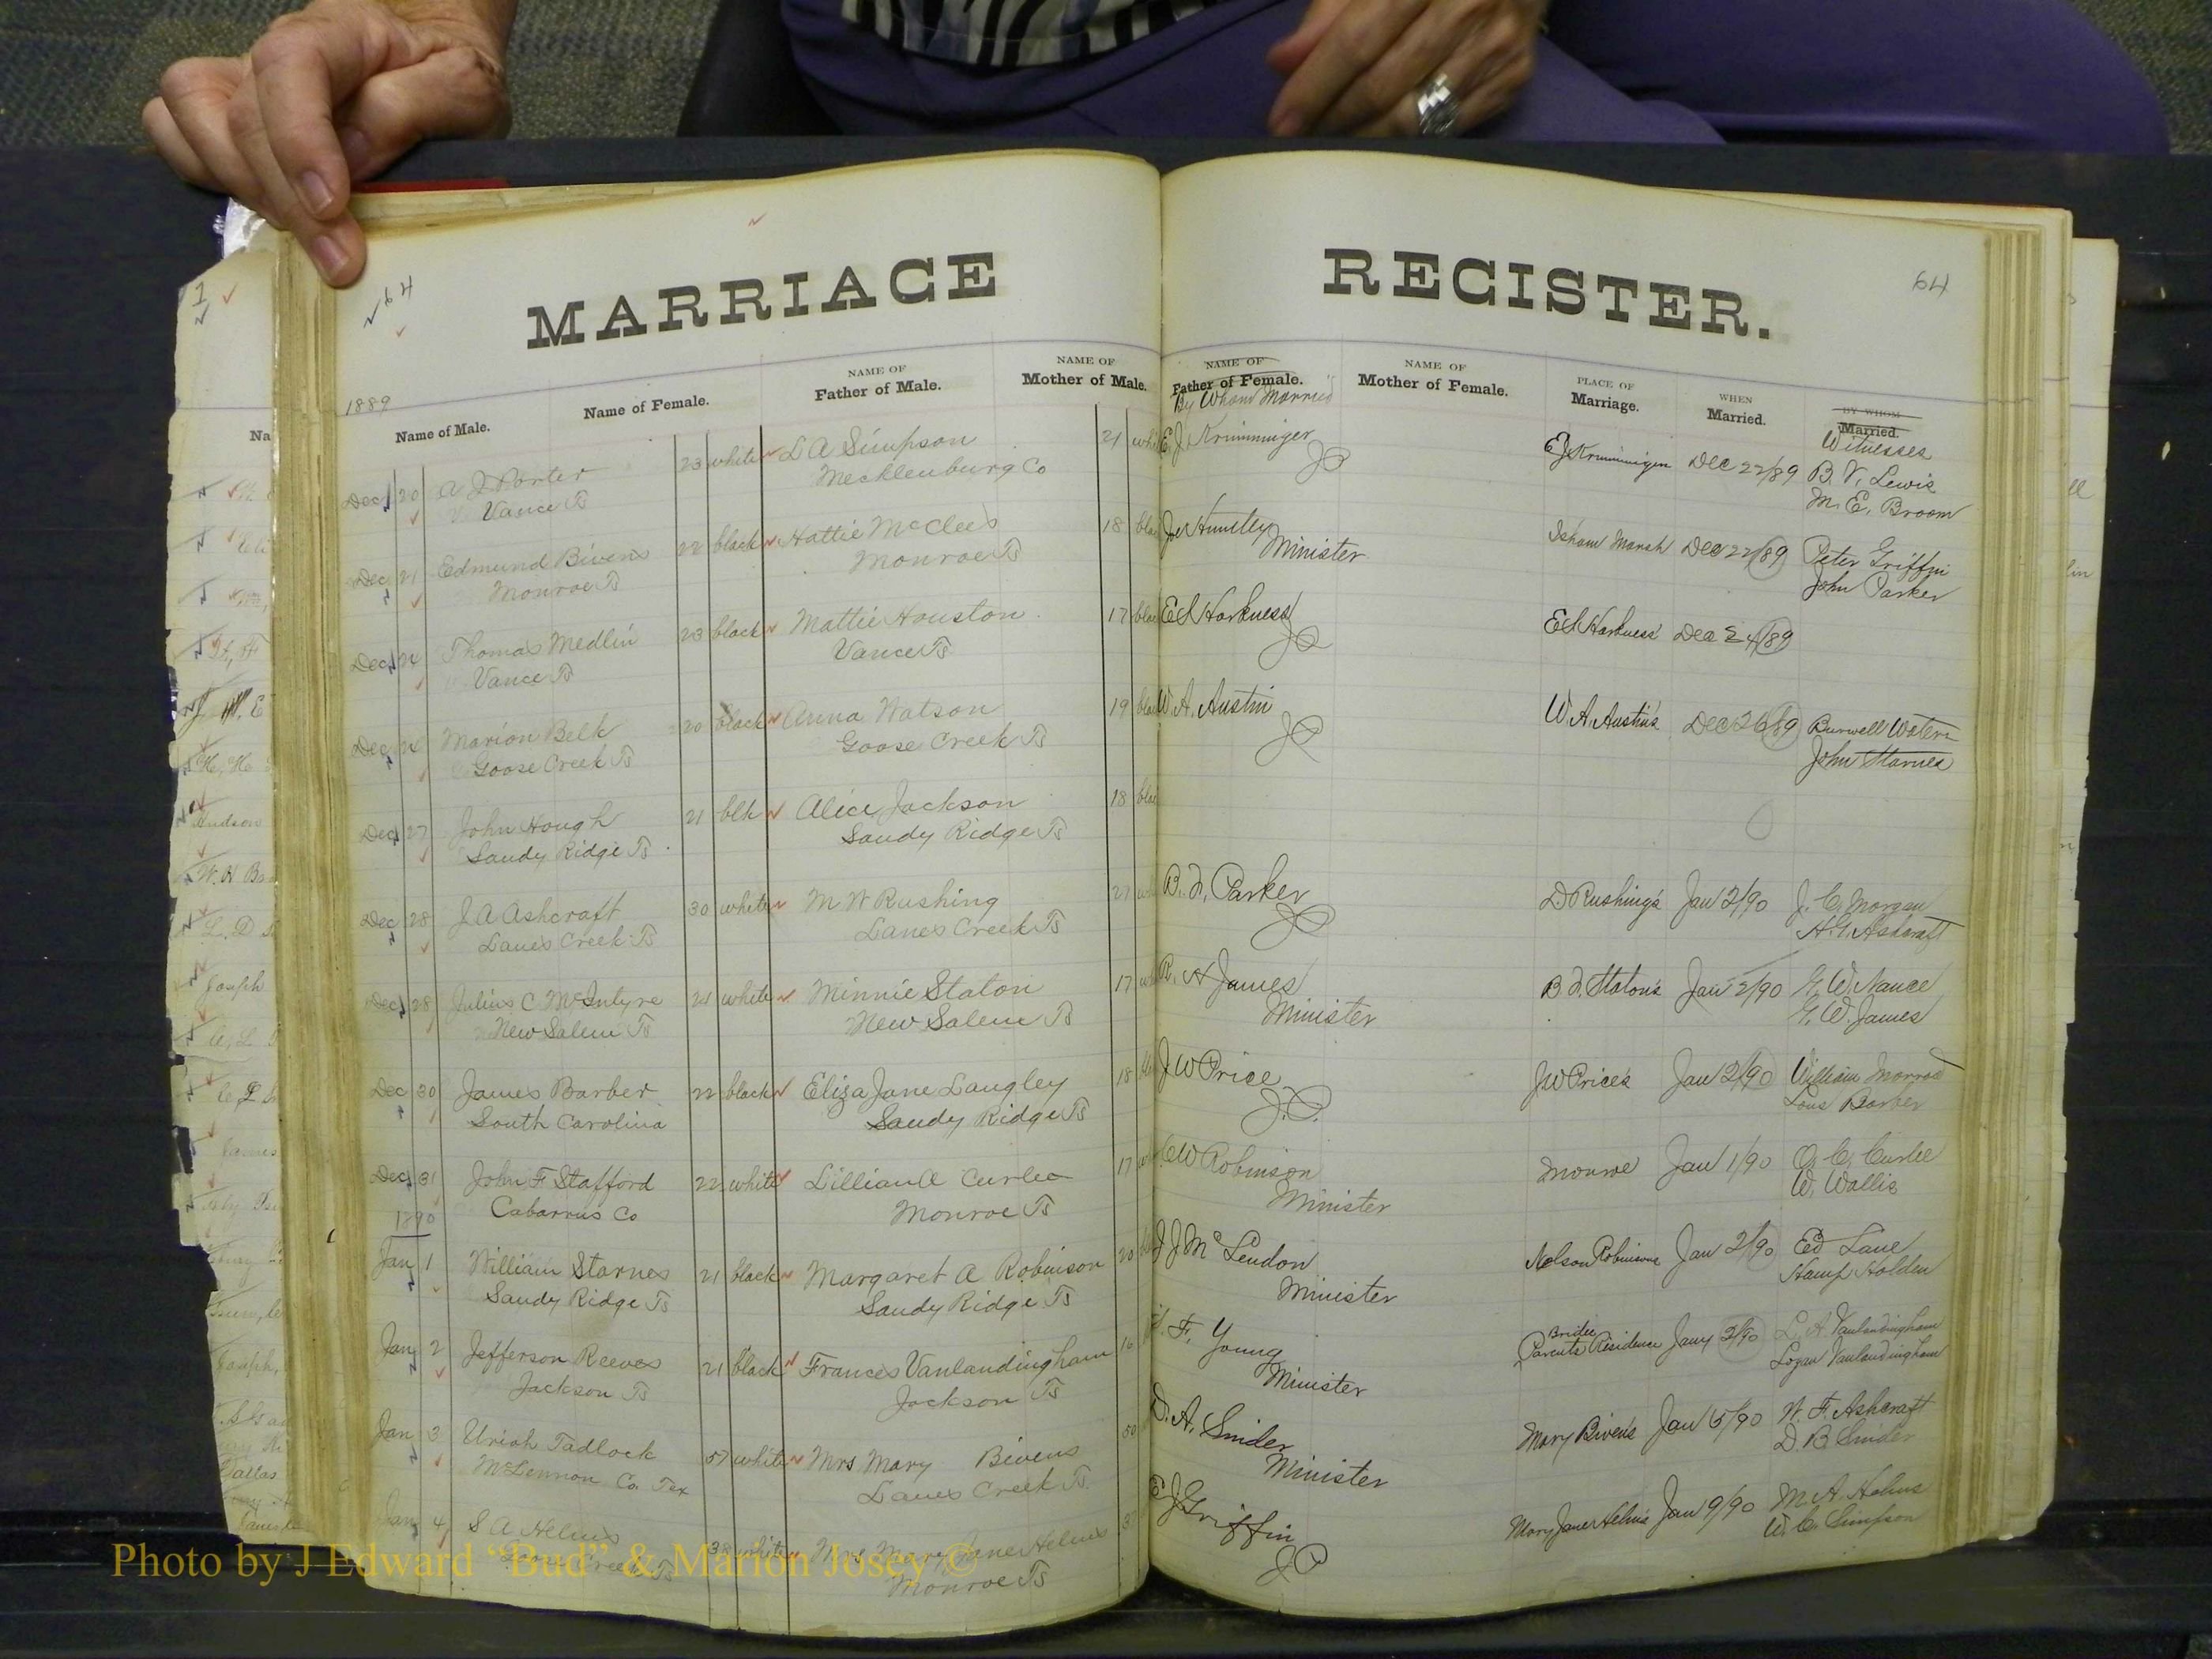 MARRIAGE REGISTER.
64 64
1889
Name of Male. Name of Female. NAME OF Father of Male. NAME OF Mother of Male. NAME OF Father of Female. NAME OF Mother of Female. PLACE OF Marriage. WHEN Married. BY WHOM Married.
By Whom Married Witnesses
Dec 20 A J Porter 23 white L A Simpson 21 E. J. Krimminger E J Krimminger Dec 22/89 B. V. Lewis
Vance Ts Mecklenburg Co JP M. E. Broom
Dec 21 Edmund Bivens 22 black Hattie McClees 18 Joe Huntley Isham Marsh Dec 22/89 Peter Griffin
Monroe Ts Monroe Ts Minister John Parker
Dec 24 Thomas Medlin 23 black Mattie Houston 17 E S Harkness E S Harkness' Dec 24/89
Vance Ts Vance Ts JP
Dec Marion Belk 20 black Anna Watson 19 W. A. Austin W. A. Austin's Dec 26/89 Burwell Waters
Goose Creek Ts Goose Creek Ts JP John Starnes
Dec 27 John Hough 21 blk Alice Jackson 18
Sandy Ridge Ts Sandy Ridge Ts
Dec 28 J A Ashcraft 30 white M W Rushing B. F. Parker D Rushing's Jan 2/90 J. C. Morgan
Lanes Creek Ts Lanes Creek Ts JP Ashcraft
Dec 28 Julius C McIntyre 24 white Minnie Staton 17 R. A James B. F. Staton's Jan 2/90 G. W. Nance
New Salem Ts New Salem Ts Minister G. W. James
Dec 30 James Barber 22 black Eliza Jane Langley 18 J W Price J W Price's Jan 2/90 William Monroe
South Carolina Sandy Ridge Ts J. P. Barber
Dec 31 John F Stafford 22 white Lillian A Curlee 17 C W Robinson Monroe Jan 1/90 O. C. Curlee
1890 Cabarrus Co Monroe Ts Minister W. Wallis
Jan 1 William Starnes 21 black Margaret A Robinson 20 J J McLendon Nelson Robinsons Jan 2/90 Ed Lane
Sandy Ridge Ts Sandy Ridge Ts Minister Hamp Holden
Jan 2 Jefferson Reeves 21 black Frances Vanlandingham 16 F. Young Brides Parents Residence Jany 2/90 L. A. Vanlandingham
Jackson Ts Jackson Ts Minister Logan Vanlandingham
Jan 3 Uriah Tadlock 57 white Mrs Mary Bivens 50 D. A. Snider Mary Biven's Jan 5/90 W. F. Ashcraft
McLennon Co. Tex Lanes Creek Ts Minister D. B. Snider
Jan 4 S A Helms 38 white Mrs Mary Jane Helms E J Griffin Mary Jane Helms Jan 9/90 M. A. Helms
Goose Creek Ts Monroe Ts JP W. C. Simpson
Photo by J Edward “Bud” & Marion Josey ©